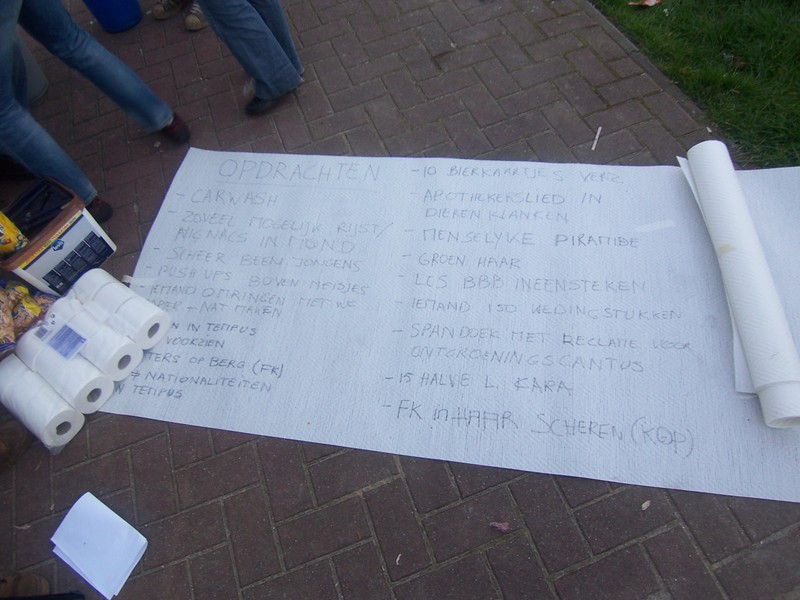 OPDRACHTEN
- CARWASH
- ZOVEEL MOGELIJK RIJST/
NICNACS IN MOND
- SCHEER BEEN JONGENS
- PUSH UPS BOVEN MEISJES
- IEMAND OMRINGEN MET WC
PAPER - NAT MAKEN
IN TEMPUS
VOORZIEN
OP BERG (FK)
NATIONALITEITEN
TEMPUS
- 10 BIERKAARTJES VERZ.
- APOTHEKERSLIED IN
DIEREN KLANKEN
- MENSELYKE PIRAMIDE
- GROEN HAAR
- LES BBB INEENSTEKEN
- IEMAND 150 KLEDINGSTUKKEN
- SPANDOEK MET RECLAME VOOR
ONTGROENINGSCANTUS
- 15 HALVE L. KARA
- FK in HAAR SCHEREN (KOP)